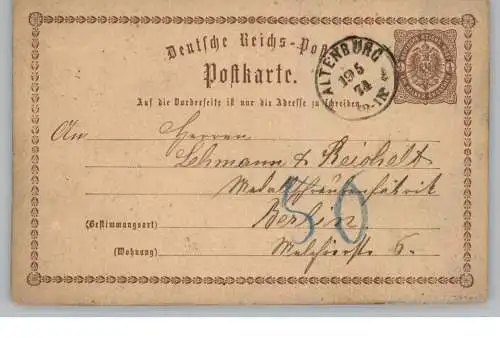 Deutsche Reichs-Post
Postkarte.
ALTENBURG
19 5
74
Auf die Vorderseite ist nur die Adresse zu schreiben.
An Herren
Lehmann & Reichelt
Metallschraubenfabrik
50
(Bestimmungsort) Berlin
(Wohnung) Melchiorstr 6.